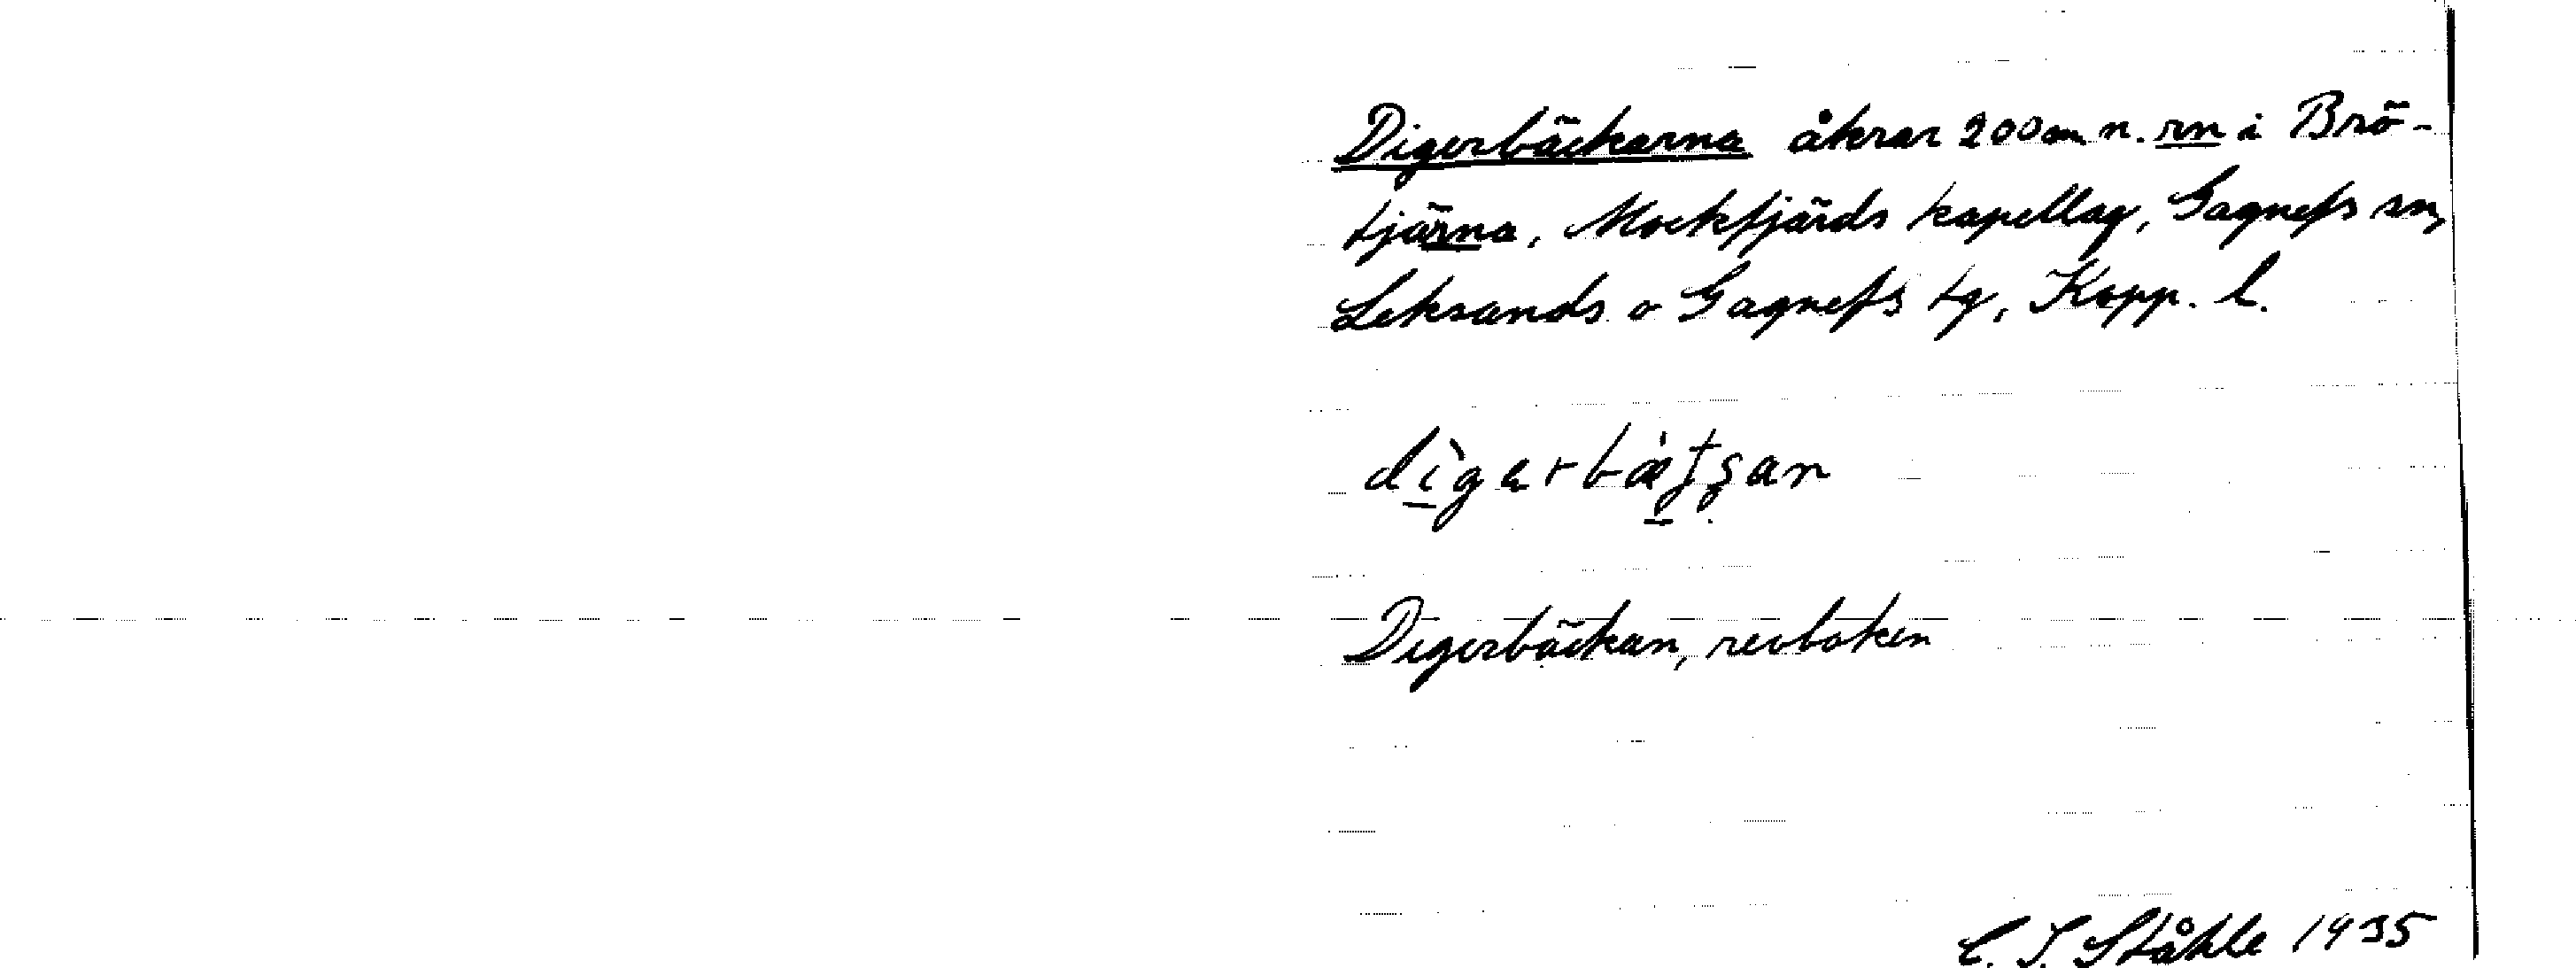 Digerbäckarna åkrar 200 m n. rn i Brö-
tjärna, Mockfjärds kapellag, Gagnefs sn,
Leksands o Gagnefs tg, Kopp. l.
Digerbäckan, revboken
C. I. Ståhle 1935